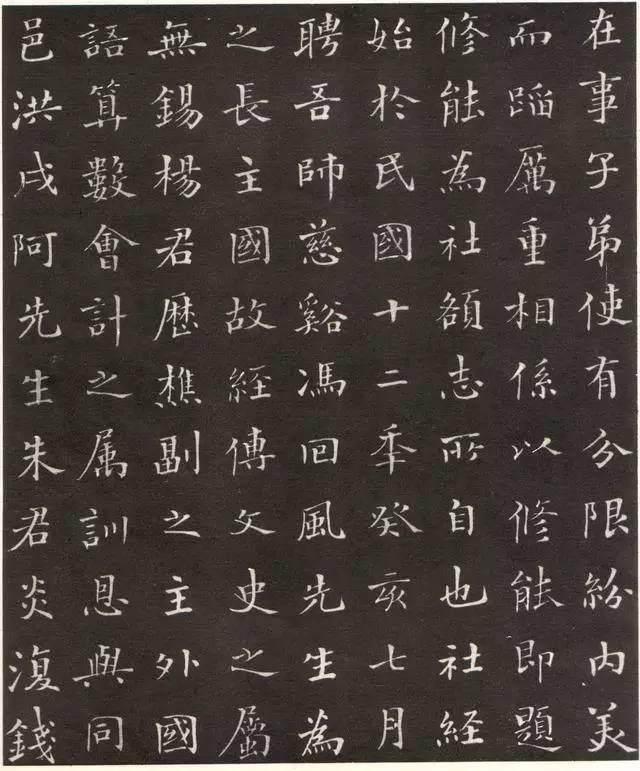 在事子弟使有分限紛内美
而蹈厲重相係以修能即題
修能為社頟志所自也社経
始於民國十二秊癸亥七月
聘吾師慈谿馮回風先生為
之長主國故経傳文史之屬
無錫楊君歷樵副之主外國
語算數會計之属訓恳與同
邑洪戌阿先生朱君炎復錢